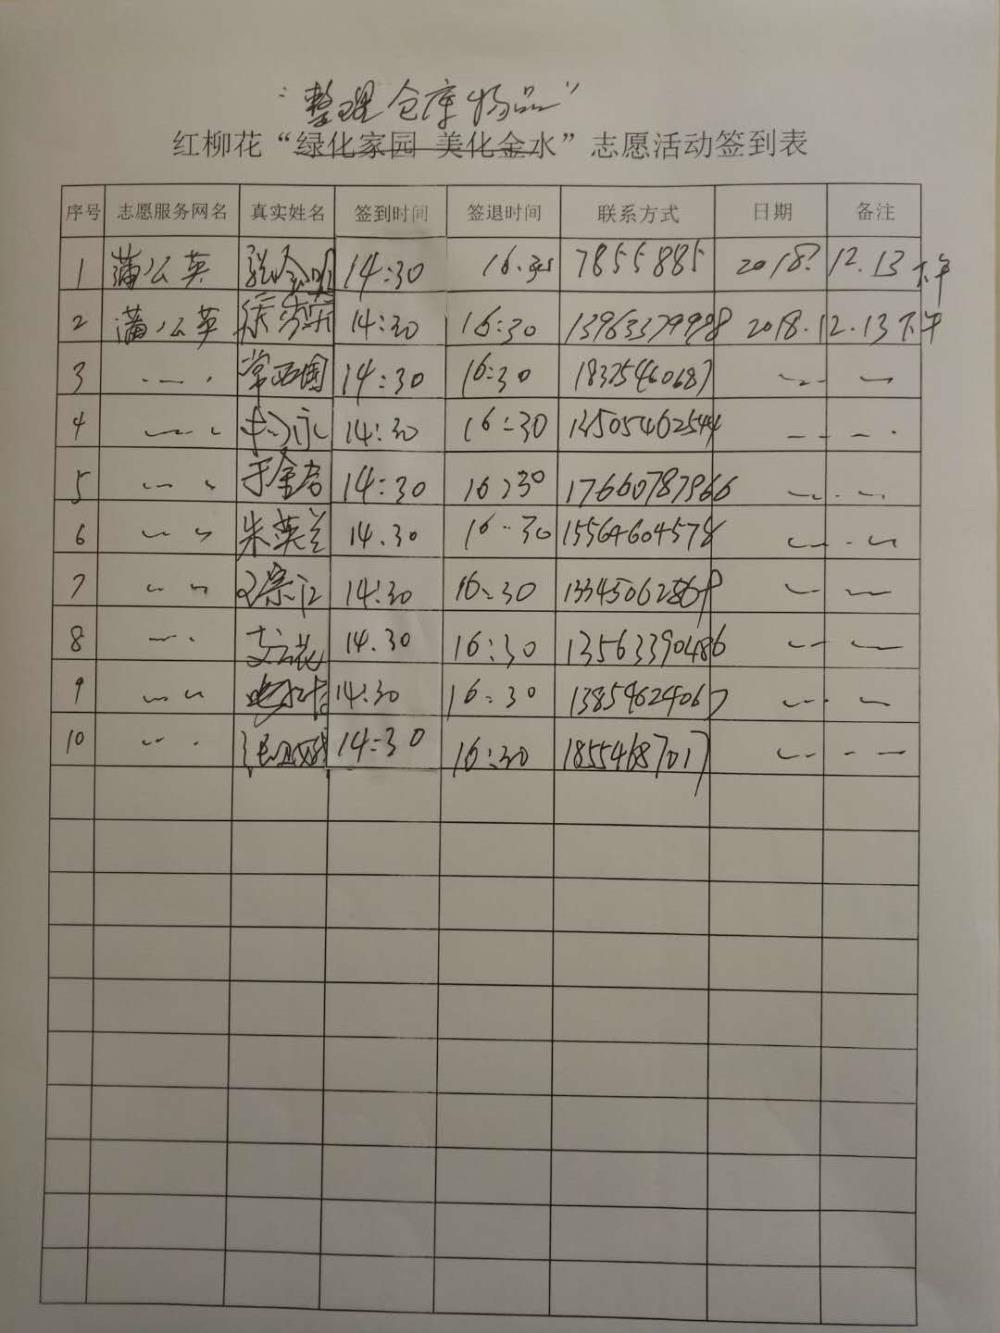 “整理仓库物品”
红柳花“绿化家园 美化金水”志愿活动签到表
序号 志愿服务网名 真实姓名 签到时间 签退时间 联系方式 日期 备注
1 蒲公英 14:30 16:30 7855885 2018. 12.13 下午
2 蒲公英 14:30 16:30 13963379998 2018.12.13下午
3 常西国 14:30 16:30 18325460687
4 14:30 16:30 13505462544
5 14:30 16:30 17660787966
6 朱英兰 14.30 16:30 15564604578
7 14:30 16:30 13345062869
8 14.30 16:30 13563390486
9 14:30 16:30 13854624067
10 14:30 16:30 18554687017